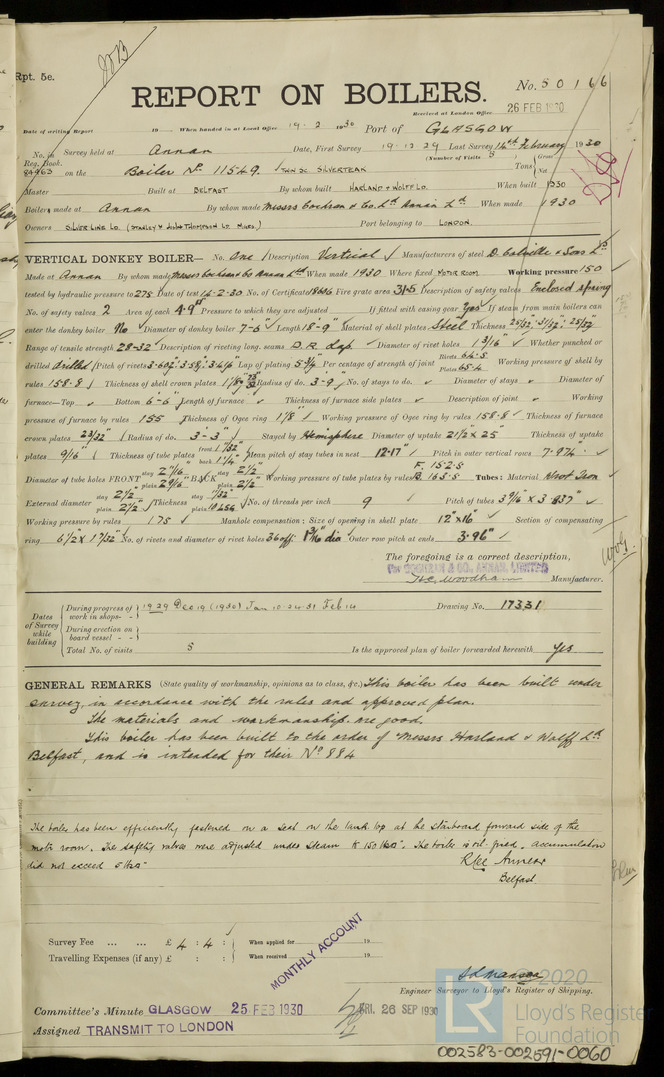 Rpt. 5e.
REPORT ON BOILERS.
No. 50166
Received at London Office
26 FEB 1930
Date of writing Report 19 When handed in at Local Office 19 · 2 1930 Port of GLASGOW
No. in Reg. Book. Survey held at Annan Date, First Survey 19 · 12 · 29 Last Survey 14th February 1930
(Number of Visits 5)
84963 on the Boiler No. 11549. SILVERTEAK Tons Gross Net
Master Built at BELFAST By whom built HARLAND & WOLFF LD. When built 1930
Boilers made at Annan By whom made Messrs Cochran & Co. Ld. Annan Ld. When made 1930
Owners SILVER LINE LD. Port belonging to LONDON.
VERTICAL DONKEY BOILER— No. One Description Vertical Manufacturers of steel D. Colville & Sons Ld.
Made at Annan By whom made Messrs Cochran & Co Annan Ld. When made 1930 Where fixed MOTOR ROOM Working pressure 150
tested by hydraulic pressure to 275 Date of test 14.2.30 No. of Certificate 18606 Fire grate area 31.5 Description of safety valves Enclosed spring
No. of safety valves 2 Area of each 4.9" Pressure to which they are adjusted If fitted with easing gear Yes If steam from main boilers can
enter the donkey boiler No Diameter of donkey boiler 7-6 Length 18-9" Material of shell plates Steel Thickness 25/32", 31/32", 25/32"
Range of tensile strength 28-32 Description of riveting long. seams D.R. Lap. Diameter of rivet holes 1 3/16" Whether punched or
drilled drilled Pitch of rivets Lap of plating 5 3/4 Per centage of strength of joint Rivets Plates 65.4 Working pressure of shell by
rules 158.8 Thickness of shell crown plates Radius of do. 3-9 No. of stays to do. Diameter of stays Diameter of
furnace—Top Bottom 6-6 Length of furnace Thickness of furnace side plates Description of joint Working
pressure of furnace by rules 155 Thickness of Ogee ring 1 1/8" Working pressure of Ogee ring by rules 158.8 Thickness of furnace
crown plates 23/32" Radius of do. 3-3" Stayed by Hemisphere Diameter of uptake 21 1/2 x 25" Thickness of uptake
plates 9/16" Thickness of tube plates front back Mean pitch of stay tubes in nest 12.17 Pitch in outer vertical rows 7.974
Diameter of tube holes FRONT stay 2 7/16" plain 2 9/16" BACK stay 2 1/2" plain 2 1/2" Working pressure of tube plates by rules F. 152.8 B. 163.8 Tubes: Material Wrot Iron
External diameter stay 2 1/2" plain 2 1/2" Thickness stay 7/32" plain No. of threads per inch 9 Pitch of tubes
Working pressure by rules 175 Manhole compensation: Size of opening in shell plate 12" x 16" Section of compensating
ring 6 1/2 x 1 7/32" No. of rivets and diameter of rivet holes 36 off: 1 3/16" dia Outer row pitch at ends 3.96"
The foregoing is a correct description,
For COCHRAN & CO., ANNAN, LIMITED
Manufacturer.
Dates of Survey while building
During progress of work in shops - - 1929 Dec 19 (1930) Jan 10 · 24 · 31 Feb 14 Drawing No. 17331
During erection on board vessel - - -
Total No. of visits 5 Is the approved plan of boiler forwarded herewith Yes
GENERAL REMARKS (State quality of workmanship, opinions as to class, &c.) This boiler has been built under
survey, in accordance with the rules and approved plan.
The materials and workmanship are good.
This boiler has been built to the order of Messrs Harland & Wolff Ld.
Belfast, and is intended for their No. 884
The boiler has been efficiently fastened on a seat on the tank top at the starboard forward side of the
motor room. The safety valves were adjusted under steam to 150 lbs. The boiler is oil fired. Accumulation
did not exceed 5 lbs.
Belfast.
Survey Fee ... ... £ 4 : 4 : When applied for 19
Travelling Expenses (if any) £ : : When received 19
MONTHLY ACCOUNT
Engineer Surveyor to Lloyd's Register of Shipping.
Committee's Minute GLASGOW 25 FEB 1930
FRI. 26 SEP 1930
Assigned TRANSMIT TO LONDON
© 2020
LR
Lloyd's Register
Foundation
002583-002591-0060